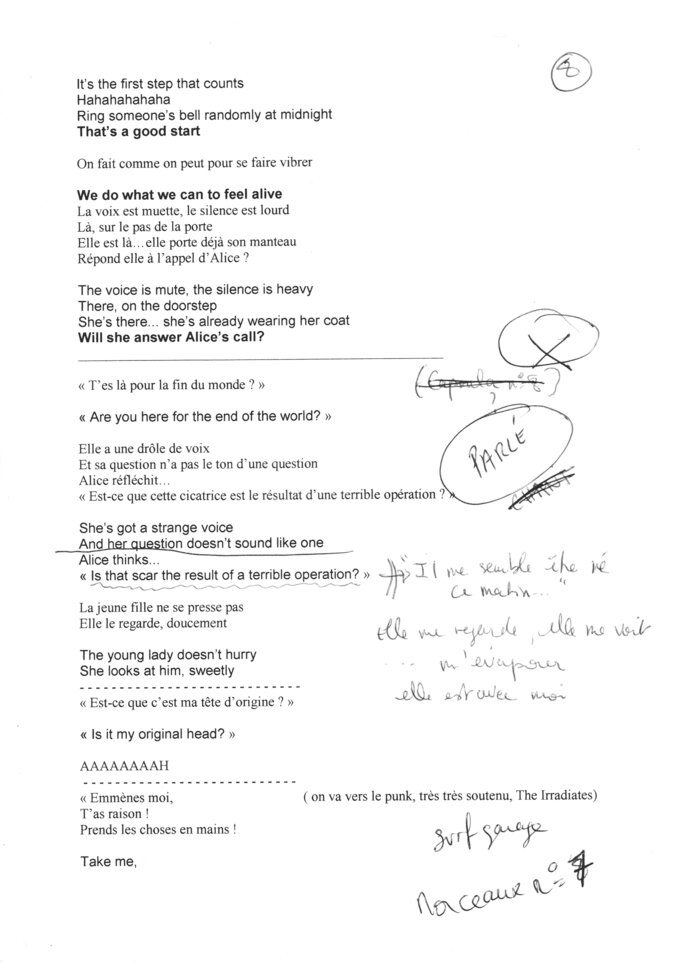 8
It's the first step that counts
Hahahahahaha
Ring someone's bell randomly at midnight
That's a good start
On fait comme on peut pour se faire vibrer
We do what we can to feel alive
La voix est muette, le silence est lourd
Là, sur le pas de la porte
Elle est là…elle porte déjà son manteau
Répond elle à l'appel d'Alice ?
The voice is mute, the silence is heavy
There, on the doorstep
She's there... she's already wearing her coat
Will she answer Alice's call?
« T'es là pour la fin du monde ? »
« Are you here for the end of the world? »
PARLÉ
Elle a une drôle de voix
Et sa question n'a pas le ton d'une question
Alice réfléchit…
« Est-ce que cette cicatrice est le résultat d'une terrible opération ? »
She's got a strange voice
And her question doesn't sound like one
Alice thinks...
« Is that scar the result of a terrible operation? »
"Il me semble être né
ce matin..."
La jeune fille ne se presse pas
Elle le regarde, doucement
Elle me regarde, elle me voit
... m'évaporer
elle est avec moi
The young lady doesn't hurry
She looks at him, sweetly
« Est-ce que c'est ma tête d'origine ? »
« Is it my original head? »
AAAAAAAAH
« Emmènes moi, ( on va vers le punk, très très soutenu, The Irradiates)
T'as raison !
Prends les choses en mains !
surf garage
Take me,
Morceaux n°=